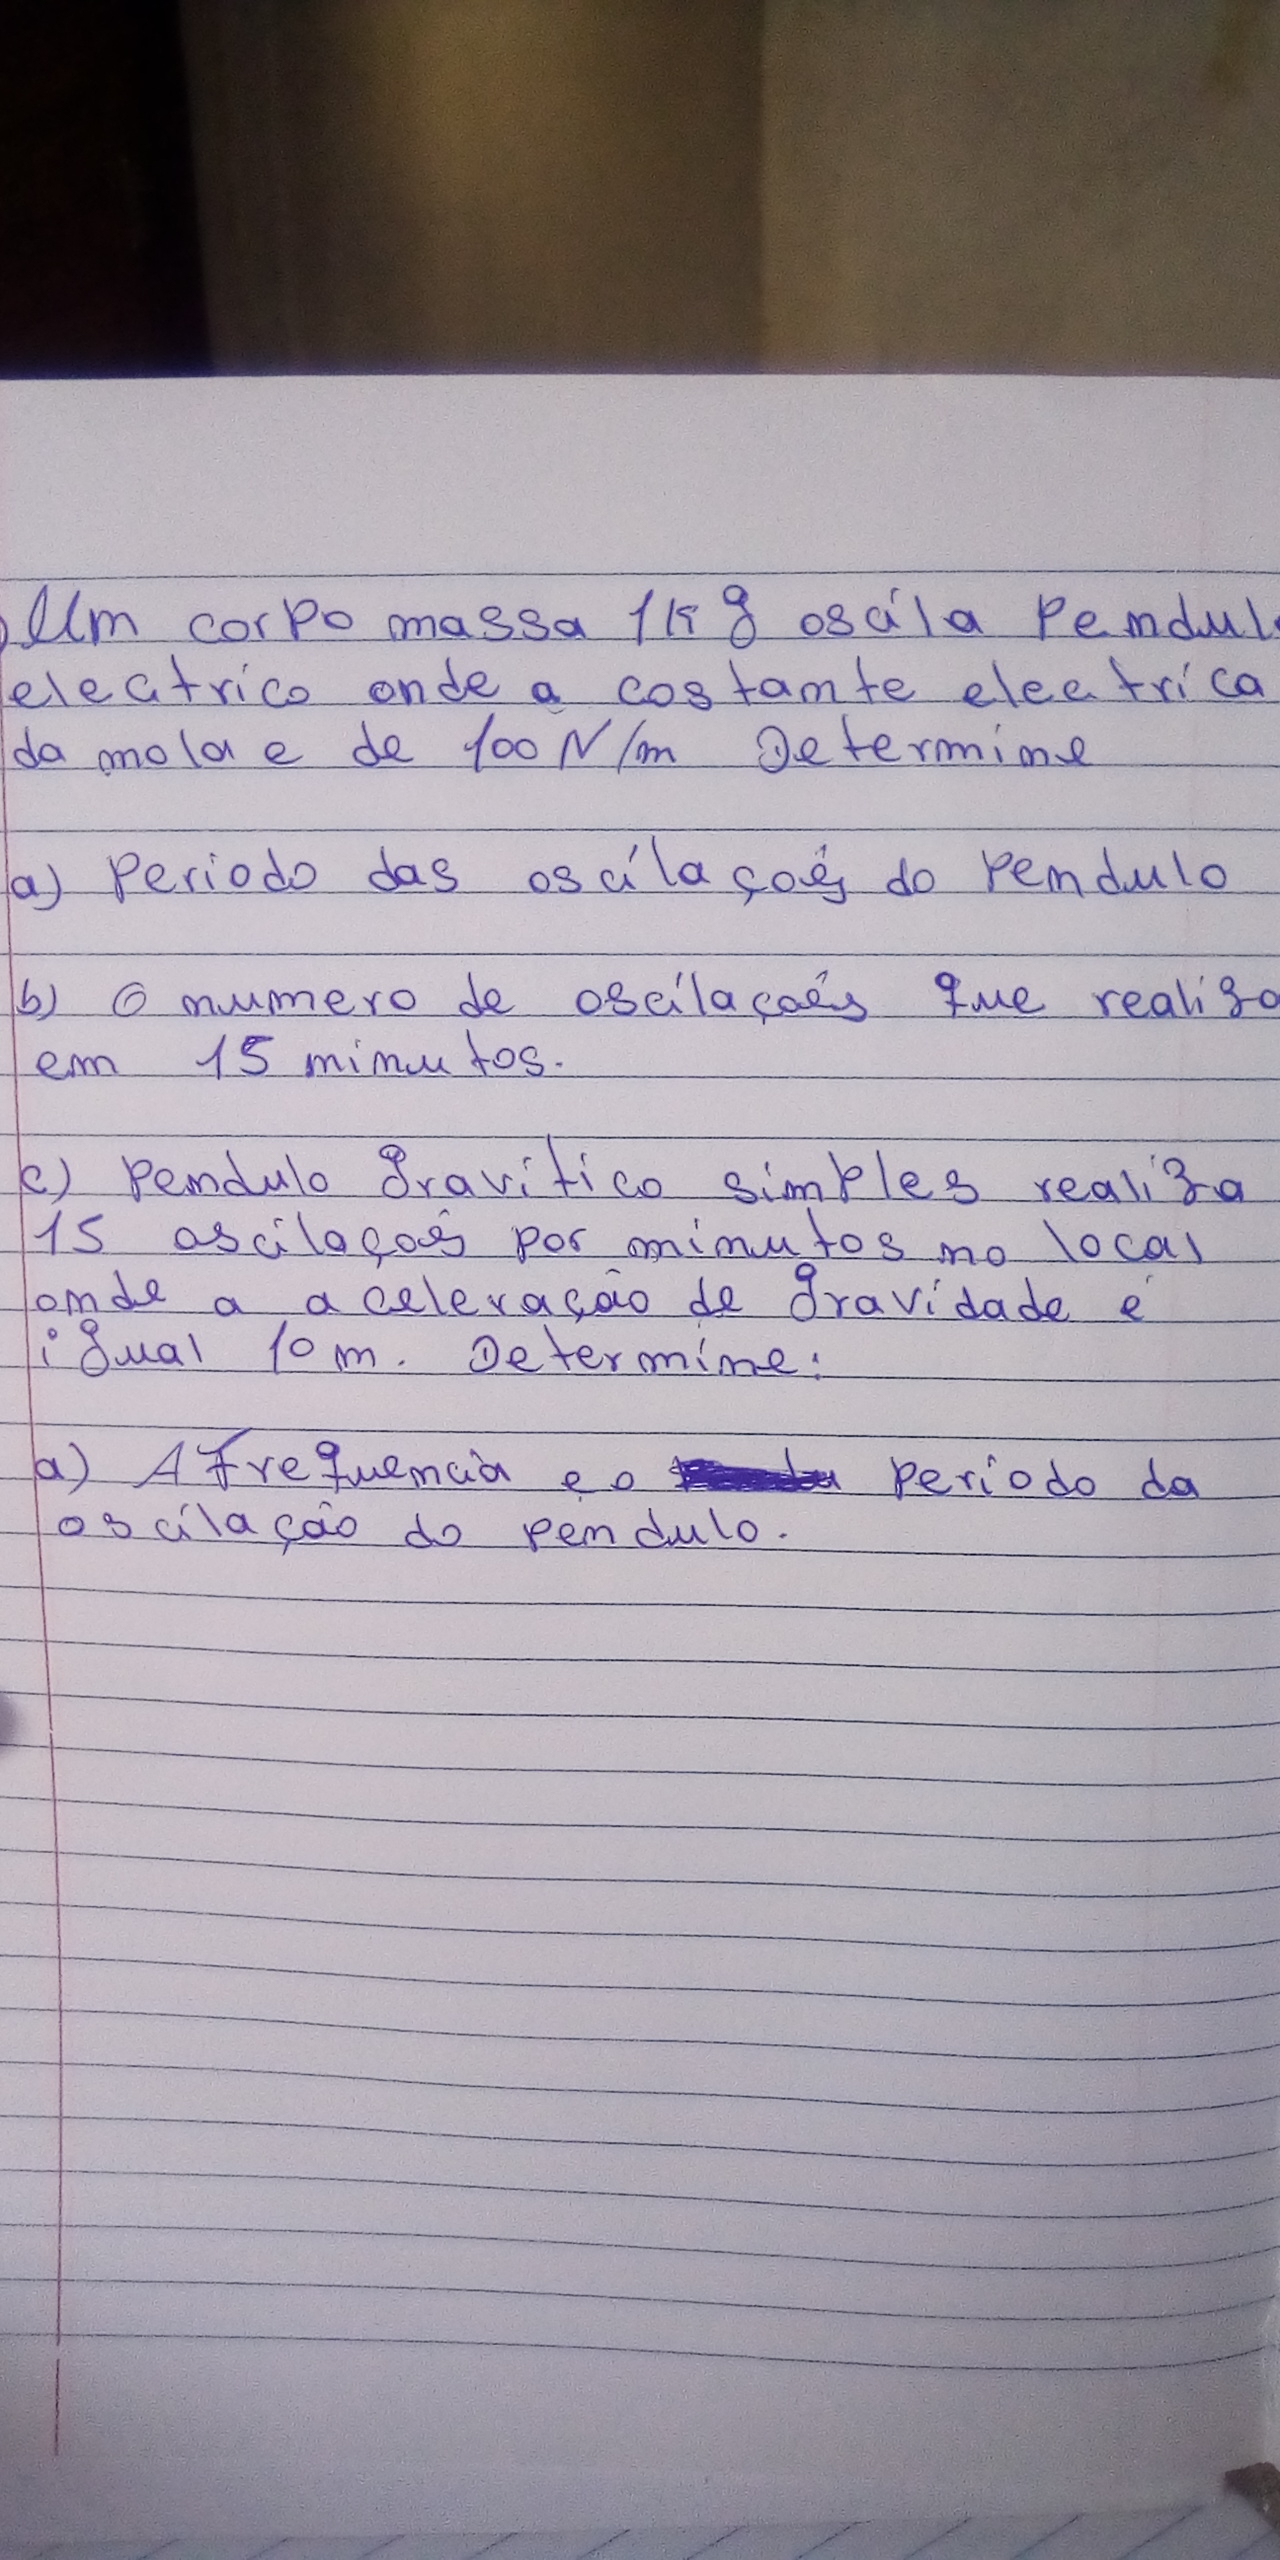 Um corpo massa 1kg oscíla Pendulo
electrico onde a costante electrica
da mola e de 100 N/m Determine
a) Periodo das oscílações do Pendulo
b) O numero de oscilações que realiza
em 15 minutos.
c) Pendulo gravitico simples realiza
15 oscilações por minutos no local
onde a aceleração de gravidade é
igual 10 m. Determine:
a) A Frequencia e o Periodo da
oscilação do Pendulo.